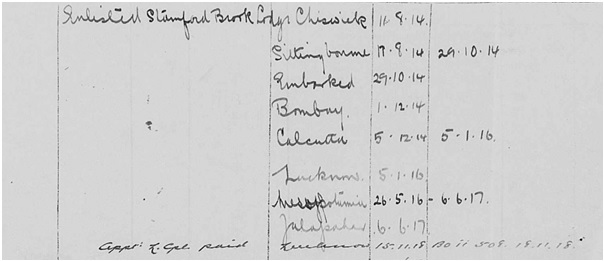 Enlisted Stamford Brook Lodge Chiswick 11.9.14.
Sittingbourne 17.9.14 29.10.14
Embarked 29.10.14
Bombay. 1.12.14
Calcutta 5.12.14 5.1.16.
Lucknow. 5.1.16.
Mesopotamia 26.5.16 - 6.6.17.
Jalapahar 6.6.17.
Appt: L. Cpl. paid Lucknow 15.11.18 18.11.18.